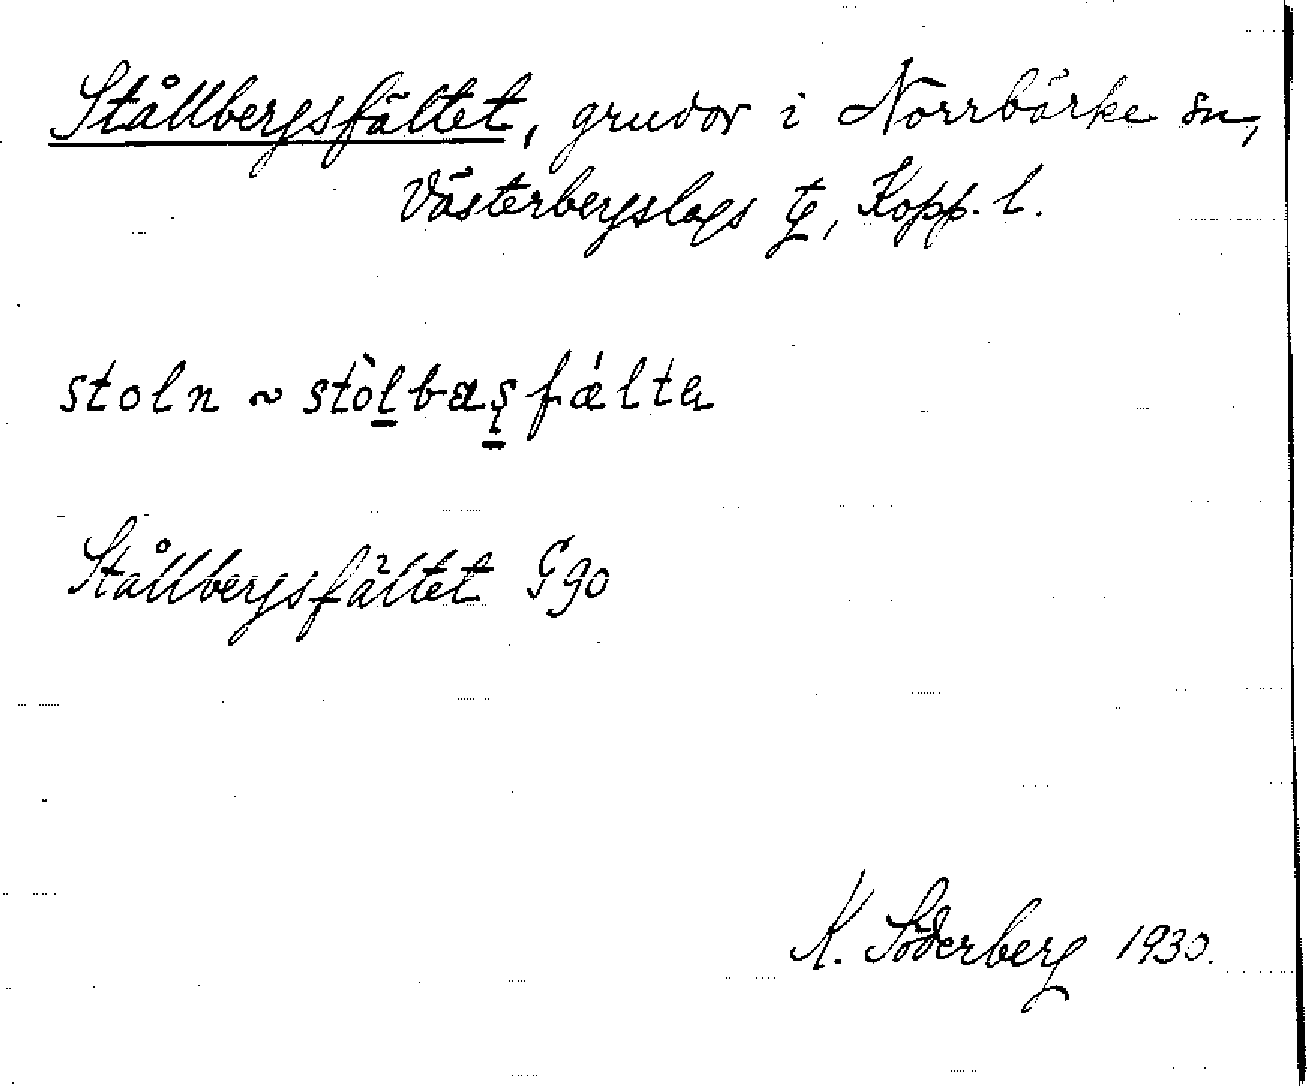 Ställbergsfältet, gruvor i Norrbärke sn,
Västerbergslags tg, Kopp. l.
stoln ~ stòlbæşfǽlta
Ställbergsfältet G90
K. Söderberg 1930.